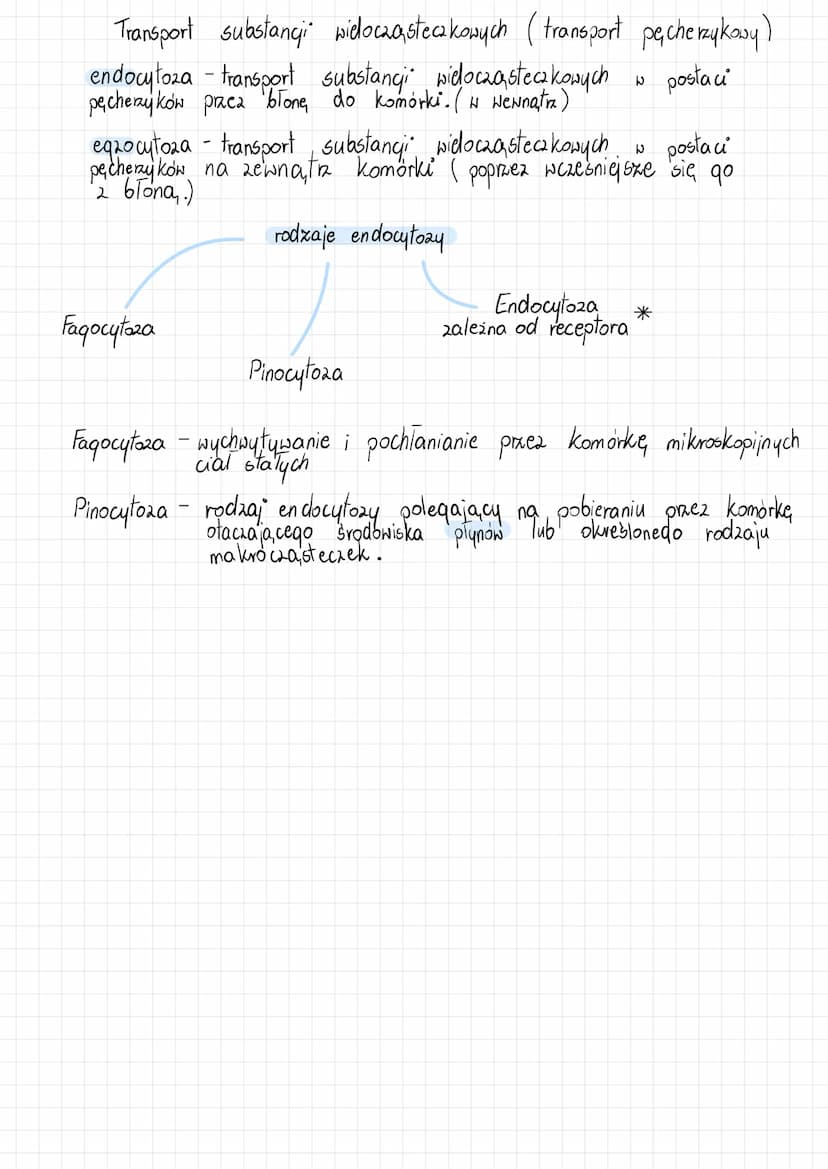 Transport substancji wielocząsteczkowych (transport pęcherzykowy)
endocytoza - transport substancji wielocząsteczkowych w postaci
pęcherzyków przez błonę do komórki. (w wewnątrz)
egzocytoza - transport substancji wielocząsteczkowych w postaci
pęcherzyków na zewnątrz komórki (poprzez wcześniejsze się go
z błoną.)
rodzaje endocytozy
Endocytoza
Fagocytoza zależna od receptora *
Pinocytoza
Fagocytoza - wychwytywanie i pochłanianie przez komórkę mikroskopijnych
ciał stałych
Pinocytoza - rodzaj endocytozy polegający na pobieraniu przez komórkę
otaczającego środowiska płynów lub określonego rodzaju
makrocząsteczek.